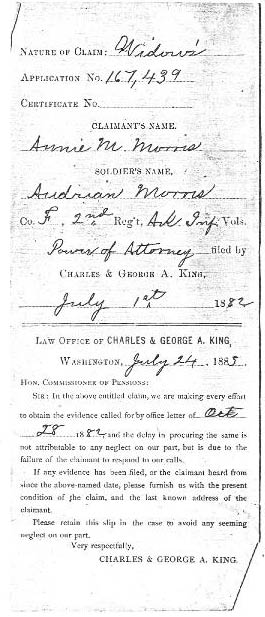 NATURE OF CLAIM: Widow's
APPLICATION No. 167,439
CERTIFICATE No.
CLAIMANT'S NAME.
Annie M. Morris
SOLDIER'S NAME.
Audrian Morris
Co. F, 2nd Reg't, Ark Inf Vols.
Power of Attorney filed by
CHARLES & GEORGE A. KING,
July 1st 1882
LAW OFFICE OF CHARLES & GEORGE A. KING,
WASHINGTON, July 24 . 1885.
HON. COMMISSIONER OF PENSIONS:
SIR: In the above entitled claim, we are making every effort
to obtain the evidence called for by office letter of Oct
28 1882 and the delay in procuring the same is
not attributable to any neglect on our part, but is due to the
failure of the claimant to respond to our calls.
If any evidence has been filed, or the claimant heard from
since the above-named date, please furnish us with the present
condition of the claim, and the last known address of the
claimant.
Please retain this slip in the case to avoid any seeming
neglect on our part.
Very respectfully,
CHARLES & GEORGE A. KING.